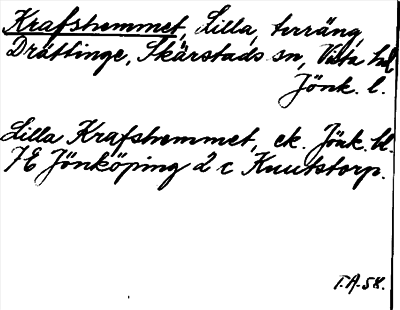 Krafshemmet, Lilla, terräng,
Drättinge, Skärstads sn, Vista hd
Jönk. l.
Lilla Krafshemmet, ek. Jönk. bl.
7E Jönköping 2 c Knutstorp.
T.A.58.